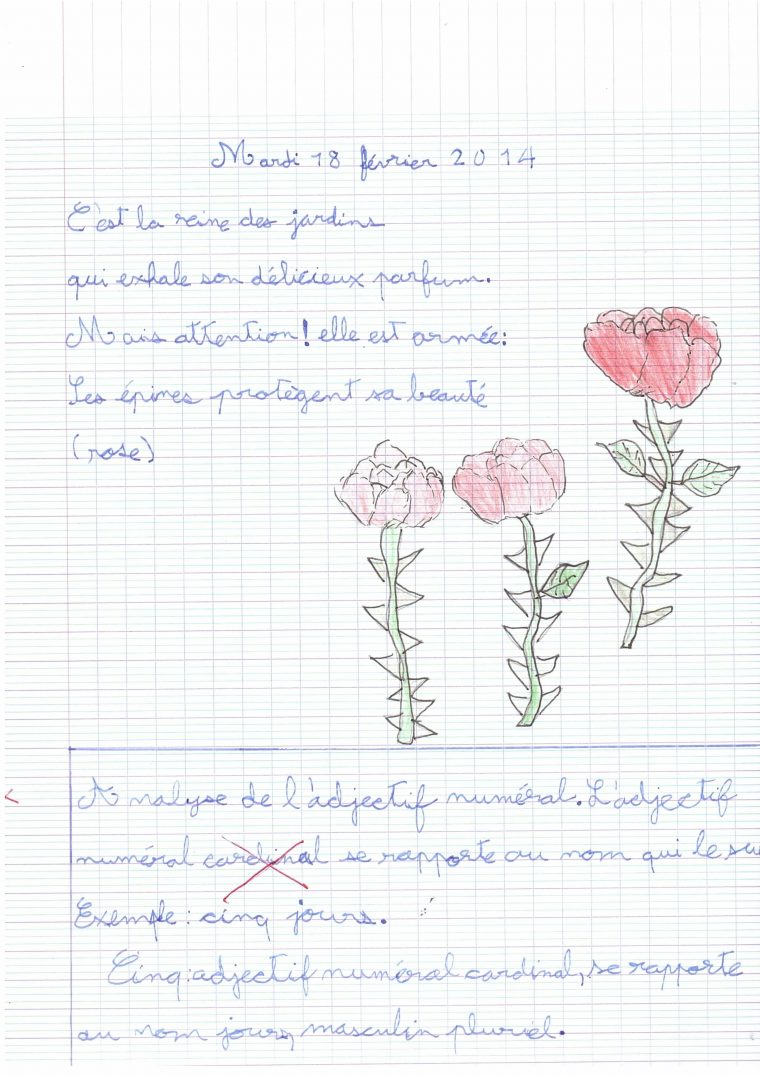 Mardi 18 février 2014
C'est la reine des jardins
qui exhale son délicieux parfum.
Mais attention! elle est armée:
Les épines protègent sa beauté
(rose)
Analyse de l'adjectif numéral. L'adjectif
numéral cardinal se rapporte au nom qui le
Exemple: cinq jours.
Cinq: adjectif numéral cardinal, se rapporte
au nom jours, masculin pluriel.